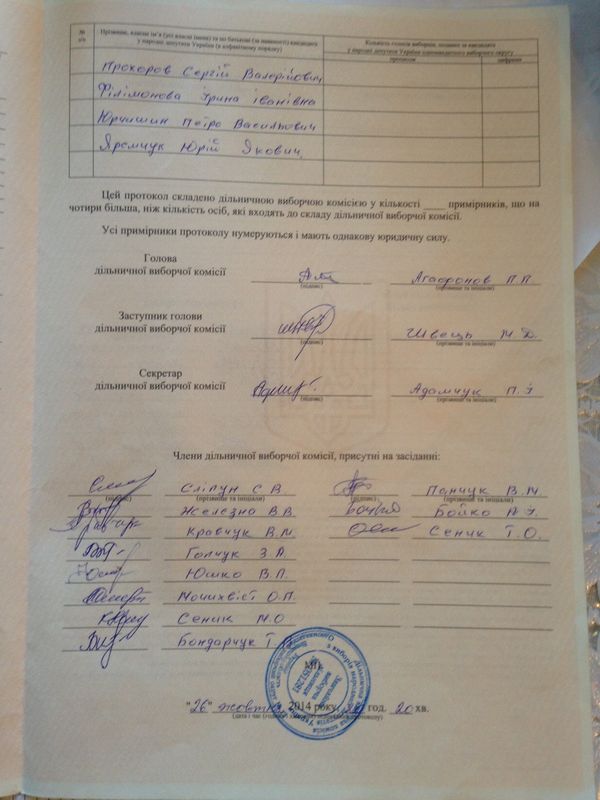 № з/п
Прізвище, власне ім'я (усі власні імена) та по батькові (за наявності) кандидата у народні депутати України (в алфавітному порядку)
Кількість голосів виборців, поданих за кандидата у народні депутати України одномандатного виборчого округу
прописом
цифрами
Прохоров Сергій Валерійович
Філімонова Ірина Іванівна
Юрчишин Петро Васильович
Яремчук Юрій Якович
Цей протокол складено дільничною виборчою комісією у кількості ____ примірників, що на
чотири більша, ніж кількість осіб, які входять до складу дільничної виборчої комісії.
Усі примірники протоколу нумеруються і мають однакову юридичну силу.
Голова
дільничної виборчої комісії
Агафонов П. П.
(підпис) (прізвище та ініціали)
Заступник голови
дільничної виборчої комісії
Швець М. Д.
(підпис) (прізвище та ініціали)
Секретар
дільничної виборчої комісії
Адамчук П. І
(підпис) (прізвище та ініціали)
Члени дільничної виборчої комісії, присутні на засіданні:
Сліпун С В. Панчук В. М
(підпис) (прізвище та ініціали) (підпис) (прізвище та ініціали)
Железна В. В. Бойко А. І.
Кравчук В. М Сеник Т. О.
Галчук З. А.
Юшко В. П.
Мочихвіст О. П.
Сеник М. О
Бондарчук Т В.
МП
"26" жовтня 2014 року, год. 20 хв.
(дата і час (години і хвилини) підписання протоколу)